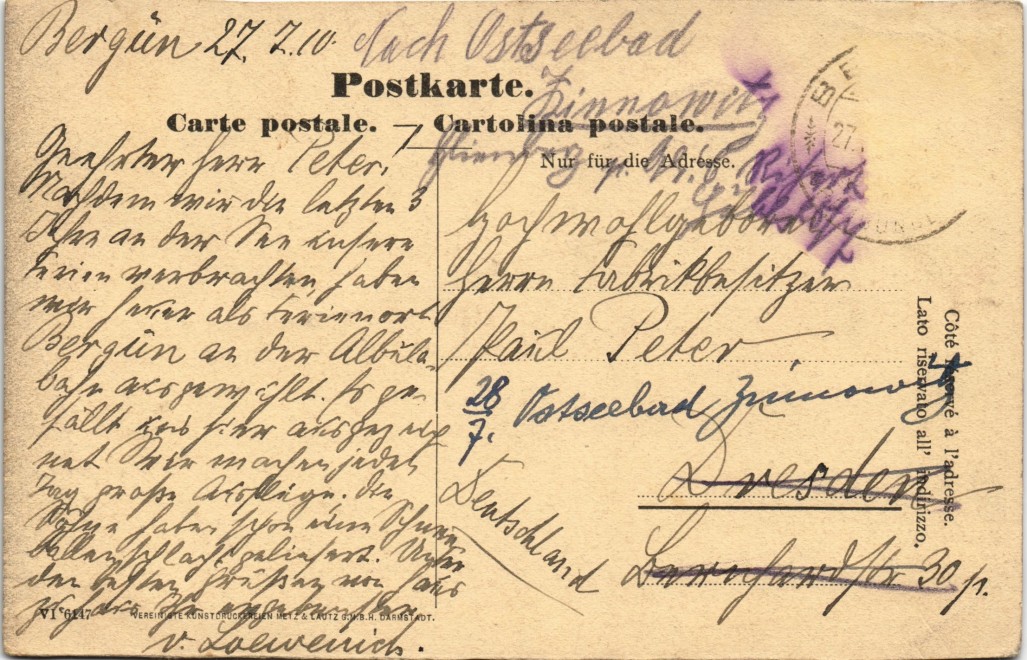 Bergün 27.7.10. Nach Ostseebad
Zinnowitz
Postkarte.
Carte postale. — Cartolina postale.
Nur für die Adresse.
Geehrter Herr Peter,
Nachdem wir die letzten 3
Jahre an der See unsere
Ferien verbrachten, haben
wir heuer als Ferienort
Bergün an der Albula-
bahn ausgewählt. Es ge-
fällt uns hier ausgezeich
net Wir machen jeden
Tag große Ausflüge. Die
haben schon eine Schnee-
ballenschlacht geliefert. Unter
den besten Grüßen von Haus
zu Haus Ihr ergebenster
v. Loewenich.
Hochwohlgeboren
Herrn Fabrikbesitzer
Paul Peter
28/7. Ostseebad Zinnowitz
Dresden
Bernhardstr 30 p.
Deutschland
Côté à l'adresse.
Lato riservato all' indirizzo.
VI 6147
VEREINIGTE KUNSTDRUCKEREIEN METZ & LAUTZ G.M.B.H. DARMSTADT.